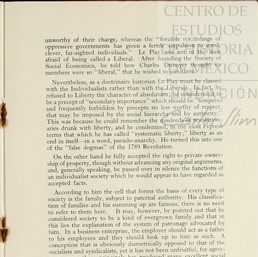 CENTRO DE
ESTUDIOS
unworthy of their charge, whereas the "forcible recordings of
oppressive governments has given a fertile expulsion to good,
clever, far-sighted individuals." Le Play was not in the least
afraid of being called a Liberal. After founding the Society of
Social Economics, he told how Charles Dunoyer thought its
members were so "liberal," that he wished to
Nevertheless, as a doctrinaire historian Le Play must be classed
with the Individualists rather than with the Liberals. In fact, he
refused to Liberty the character of absolutism he considered to
be a precept of "secondary importance" which should be "tempered
and frequently forbidden by precepts no less worthy of respect,
that may be imposed by the social hierarchy and by authority."
This was because he could remember the murders of revolution-
aries drunk with liberty, and he condemned, in the most express
terms that which he has called "systematic liberty," liberty as an
end in itself—in a word, pseudo-anarchy. He turned this into one
of the "false dogmas" of the 1789 Revolution.
On the other hand he fully accepted the right to private owner-
ship of property, though without advancing any original arguments,
and, generally speaking, he passed over in silence the functions of
an individualist society which he would appear to have regarded as
accepted facts.
According to him the cell that forms the basis of every type of
society is the family, subject to paternal authority. His classifica-
tion of families and his summing up are famous, there is no need
to refer to them here. It may, however, be pointed out that he
considered society to be a kind of overgrown family and that in
this lies the explanation of the system of patronage advocated by
him. In a business enterprise, the employer should act as a father
to his employees and they should look up to him as such. A
conception that is obviously diametrically opposed to that of the
socialists and syndicalists, yet is has not been unfruitful, for agree-